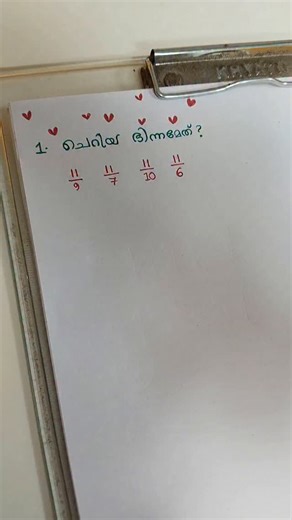 1. ചെറിയ ഭിന്നമേത്?
11/9 11/7 11/10 11/6